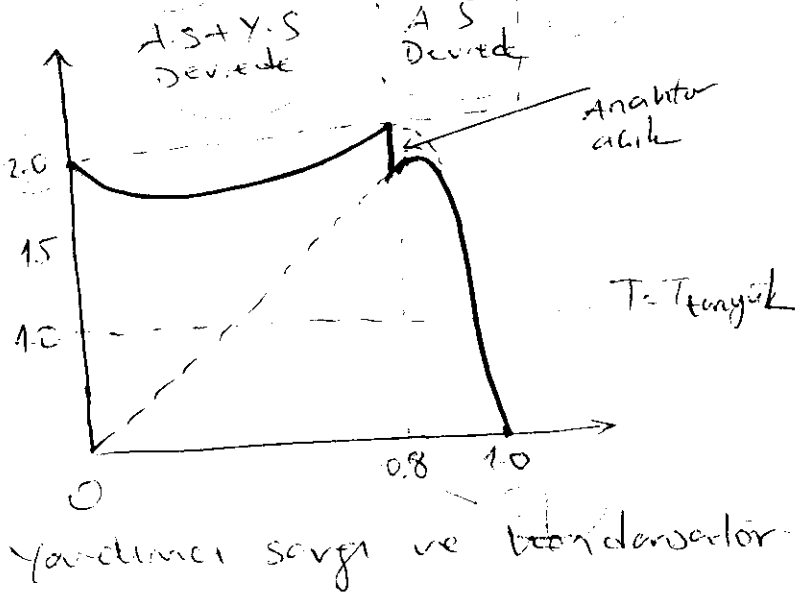 A.S+Y.S
Devrede
A S
Devrede
Anahtar
açık
2.0
1.5
1.0
T=Ttamyük
0
0.8
1.0
Yardımcı sargı ve kondansatör